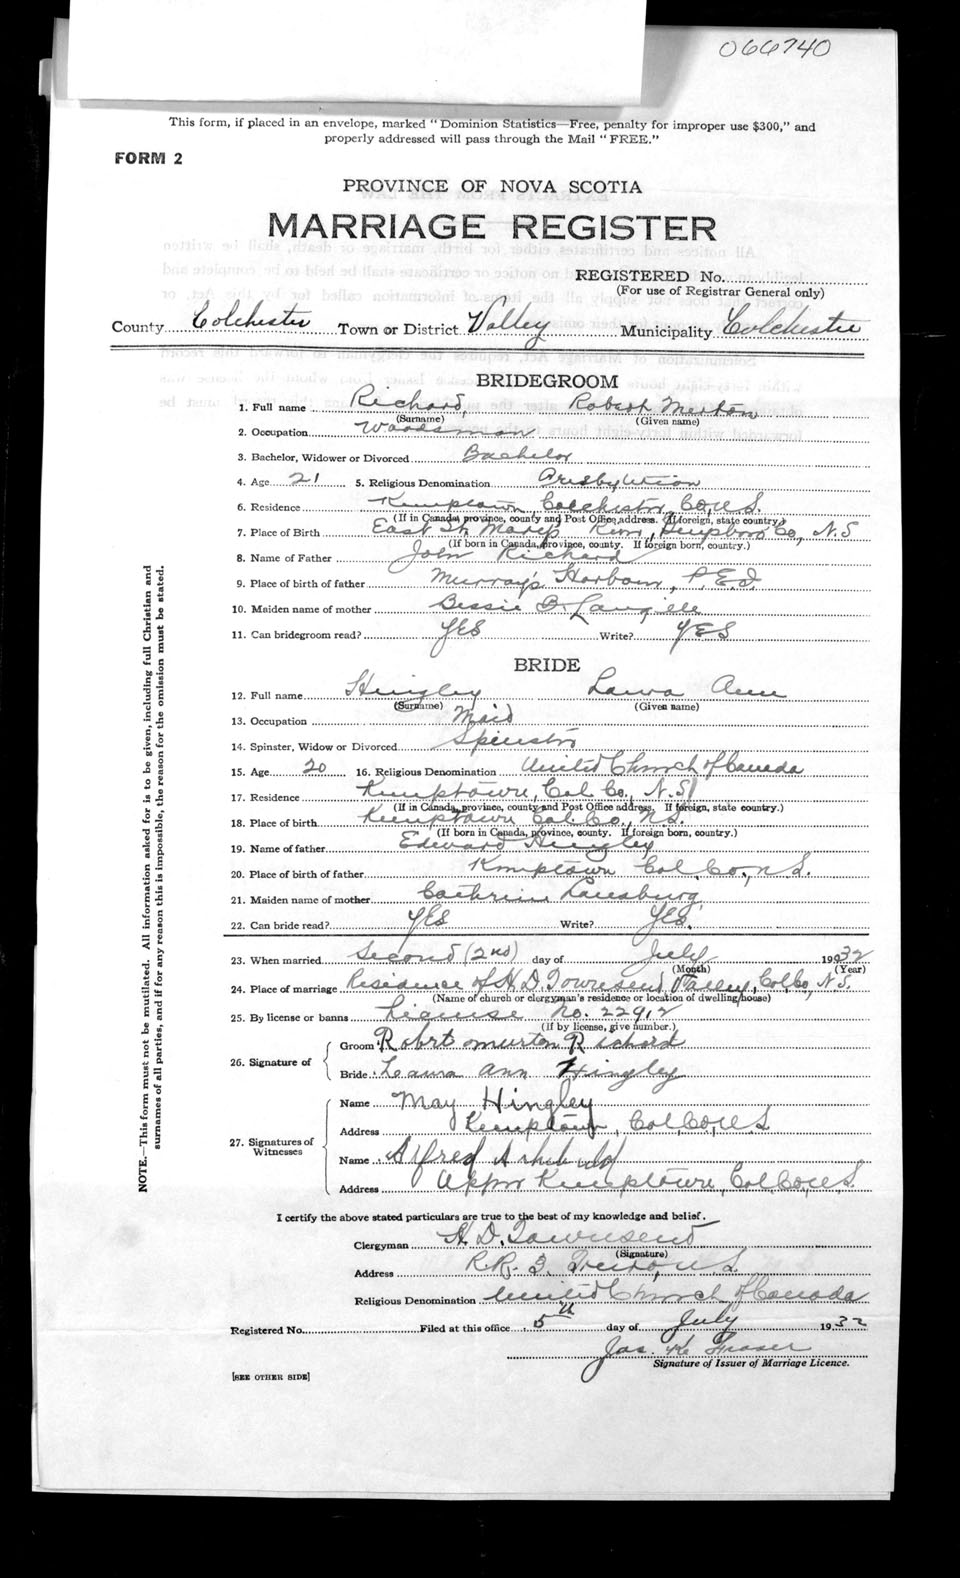 066740
This form, if placed in an envelope, marked "Dominion Statistics—Free, penalty for improper use $300," and
properly addressed will pass through the Mail "FREE."
FORM 2
PROVINCE OF NOVA SCOTIA
MARRIAGE REGISTER
REGISTERED No.
(For use of Registrar General only)
County Colchester Town or District Valley Municipality Colchester
BRIDEGROOM
1. Full name Richard, Robert Merton
(Surname) (Given name)
2. Occupation Woodsman
3. Bachelor, Widower or Divorced Bachelor
4. Age 21 5. Religious Denomination Presbyterian
6. Residence Kemptown, Colchester Co., N.S.
(If in Canada, province, county and Post Office address. If foreign, state country.)
7. Place of Birth East St. Mary's, Co., N.S
(If born in Canada, province, county. If foreign born, country.)
8. Name of Father John Richard
9. Place of birth of father Murray's Harbour, P.E.I.
10. Maiden name of mother Bessie B. Langille
11. Can bridegroom read? YES Write? YES
BRIDE
12. Full name Hingley Laura Ann
(Surname) (Given name)
13. Occupation Maid
14. Spinster, Widow or Divorced Spinster
15. Age 20 16. Religious Denomination United Church of Canada
17. Residence Kemptown, Col. Co., N.S.
(If in Canada, province, county and Post Office address. If foreign, state country.)
18. Place of birth Kemptown Col. Co., N.S.
(If born in Canada, province, county. If foreign born, country.)
19. Name of father Edward Hingley
20. Place of birth of father Kemptown Col. Co., N.S.
21. Maiden name of mother Cathrine
22. Can bride read? YES Write? YES.
23. When married Second (2nd) day of July 1932
(Month) (Year)
24. Place of marriage Residence of H. D. Townsend, Valley, Col. Co., N.S.
(Name of church or clergyman's residence or location of dwelling house)
25. By license or banns License No. 22912
(If by license, give number.)
26. Signature of
Groom Robrt Murton Richard
Bride Laura Ann Hingley
27. Signatures of Witnesses
Name May Hingley
Address Kemptown, Col. Co., N.S.
Name Alfred
Address Upper Kemptown, Col. Co., N.S.
I certify the above stated particulars are true to the best of my knowledge and belief.
Clergyman H. D. Townsend
(Signature)
Address R.R. 3, Truro, N.S.
Religious Denomination United Church of Canada
Registered No. Filed at this office 5th day of July 1932
Jas. K. Fraser
Signature of Issuer of Marriage Licence.
[SEE OTHER SIDE]
NOTE.—This form must not be mutilated. All information asked for is to be given, including full Christian and
surnames of all parties, and if for any reason this is impossible, the reason for the omission must be stated.